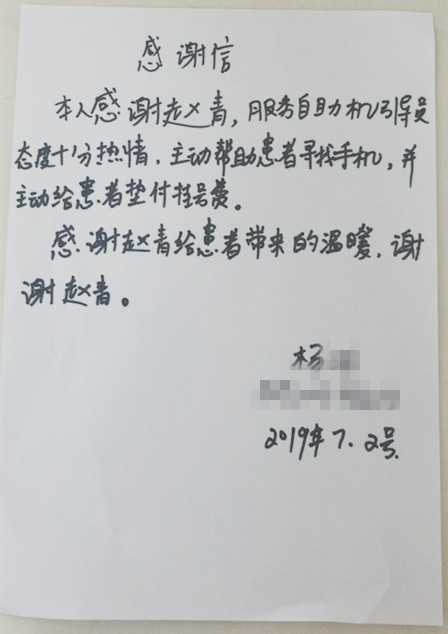 感谢信
本人感谢赵青,服务自助机引导员
态度十分热情,主动帮助患者寻找手机,并
主动给患者垫付挂号费。
感谢赵青给患者带来的温暖,谢
谢赵青。
杨
2019年7.2号